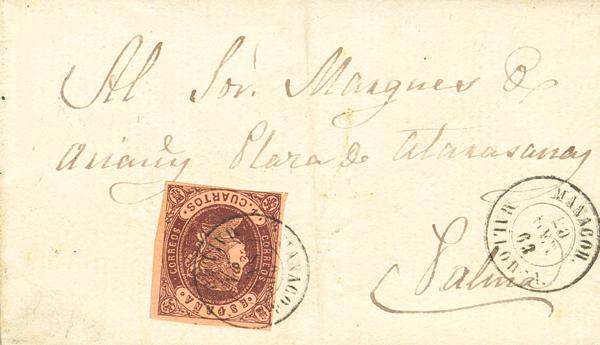 Al Sor. Marques D
Ariañy Plaza de Atarasanas
Palma
MANACOR.
63
MALLORCA
4 CUARTOS
CORREOS
CORREOS
ESPAÑA
MANACOR.